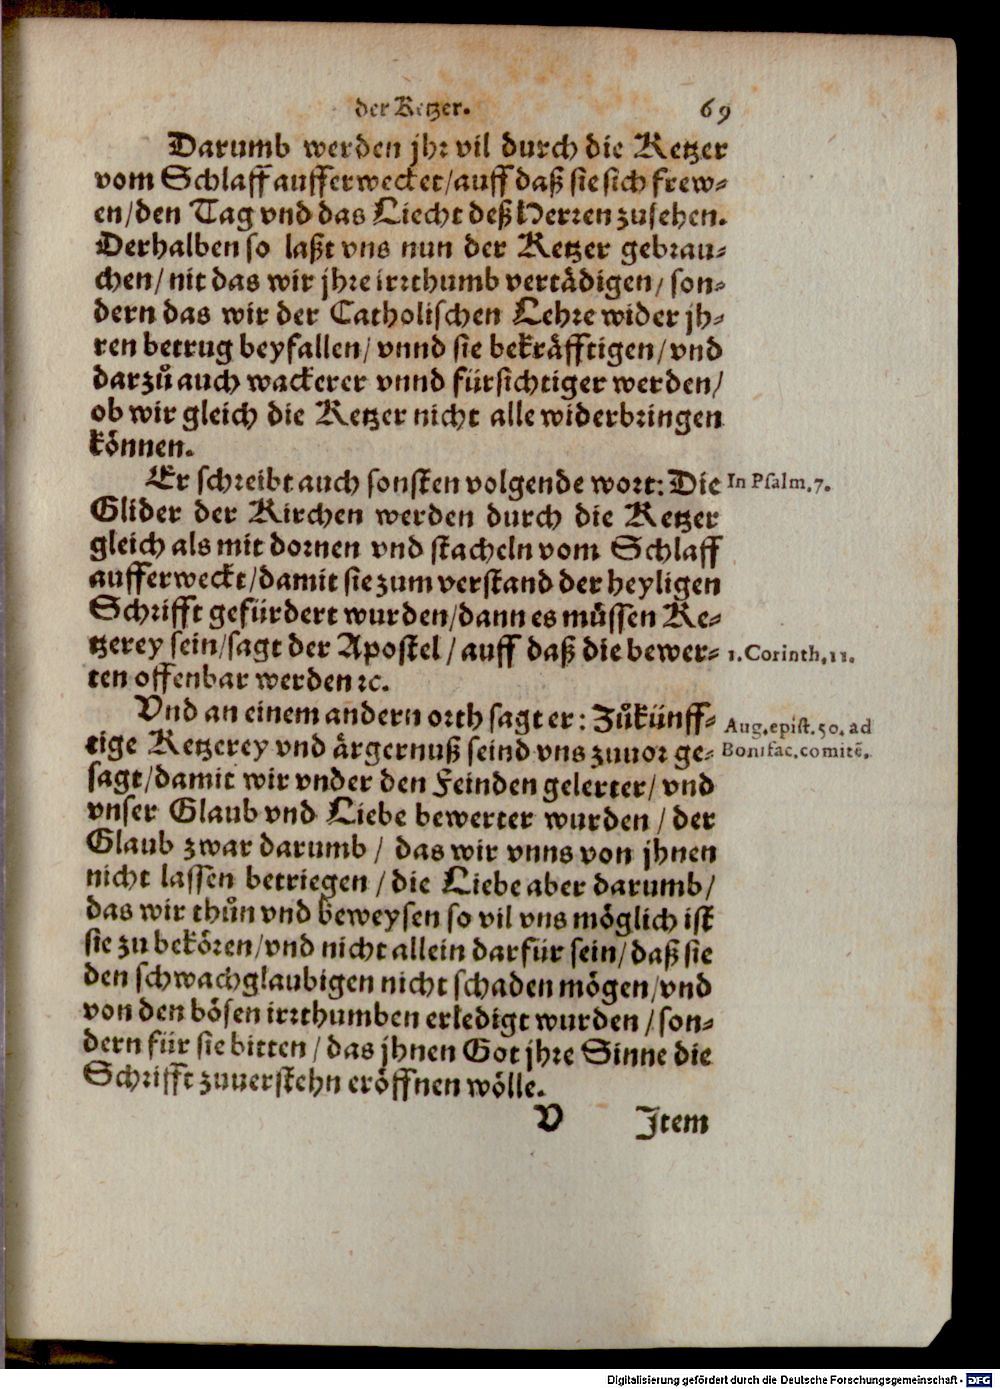 der Ketzer. 69
Darumb werden jhr vil durch die Ketzer
vom Schlaff aufferwecket/auff daß sie sich frew-
en/den Tag vnd das Liecht deß Herren zusehen.
Derhalben so laßt vns nun der Ketzer gebrau-
chen/ nit das wir jhre irrthumb vertädigen/ son-
dern das wir der Catholischen Lehre wider jh-
ren betrug beyfallen/ vnnd sie bekräfftigen/ vnd
darzů auch wackerer vnnd fürsichtiger werden/
ob wir gleich die Ketzer nicht alle widerbringen
können.
Er schreibt auch sonsten volgende wort: Die In Psalm.7.
Glider der Kirchen werden durch die Ketzer
gleich als mit dornen vnd stacheln vom Schlaff
aufferweckt/damit sie zum verstand der heyligen
Schrifft gefürdert wurden/dann es müssen Ke-
tzerey sein/sagt der Apostel/ auff daß die bewer- 1.Corinth.11.
ten offenbar werden ꝛc.
Vnd an einem andern orth sagt er: Zůkünff- Aug.epist.50.ad
tige Ketzerey vnd ärgernuß seind vns zuuor ge- Bonifac.comitē.
sagt/damit wir vnder den Feinden gelerter/ vnd
vnser Glaub vnd Liebe bewerter wurden / der
Glaub zwar darumb / das wir vnns von jhnen
nicht lassen betriegen / die Liebe aber darumb/
das wir thůn vnd beweysen so vil vns möglich ist
sie zu bekören/vnd nicht allein darfür sein/ daß sie
den schwachglaubigen nicht schaden mögen/vnd
von den bösen irrthumben erledigt wurden / son-
dern für sie bitten / das jhnen Got jhre Sinne die
Schrifft zuuerstehn eröffnen wölle.
V Item
Digitalisierung gefördert durch die Deutsche Forschungsgemeinschaft - DFG